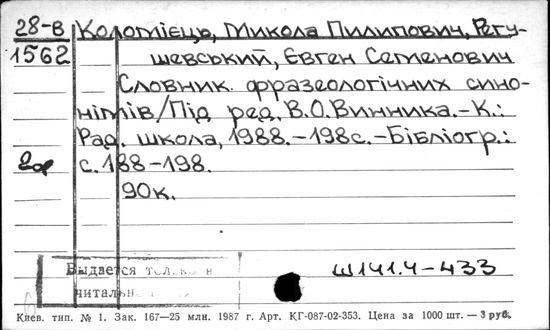 28-В Коломієць, Микола Пилипович, Регу-
1562 шевський, Євген Семенович
Словник фразеологічних сино-
німів/Під ред. В.О.Винника.-К.:
Рад. школа, 1988.-198с.-Бібліогр.:
с.188-198.
90к.
Ш141.4-433
Выдается только в
читальн
Киев. тип. № 1. Зак. 167—25 млн. 1987 г. Арт. КГ-087-02-353. Цена за 1000 шт. — 3 руб.